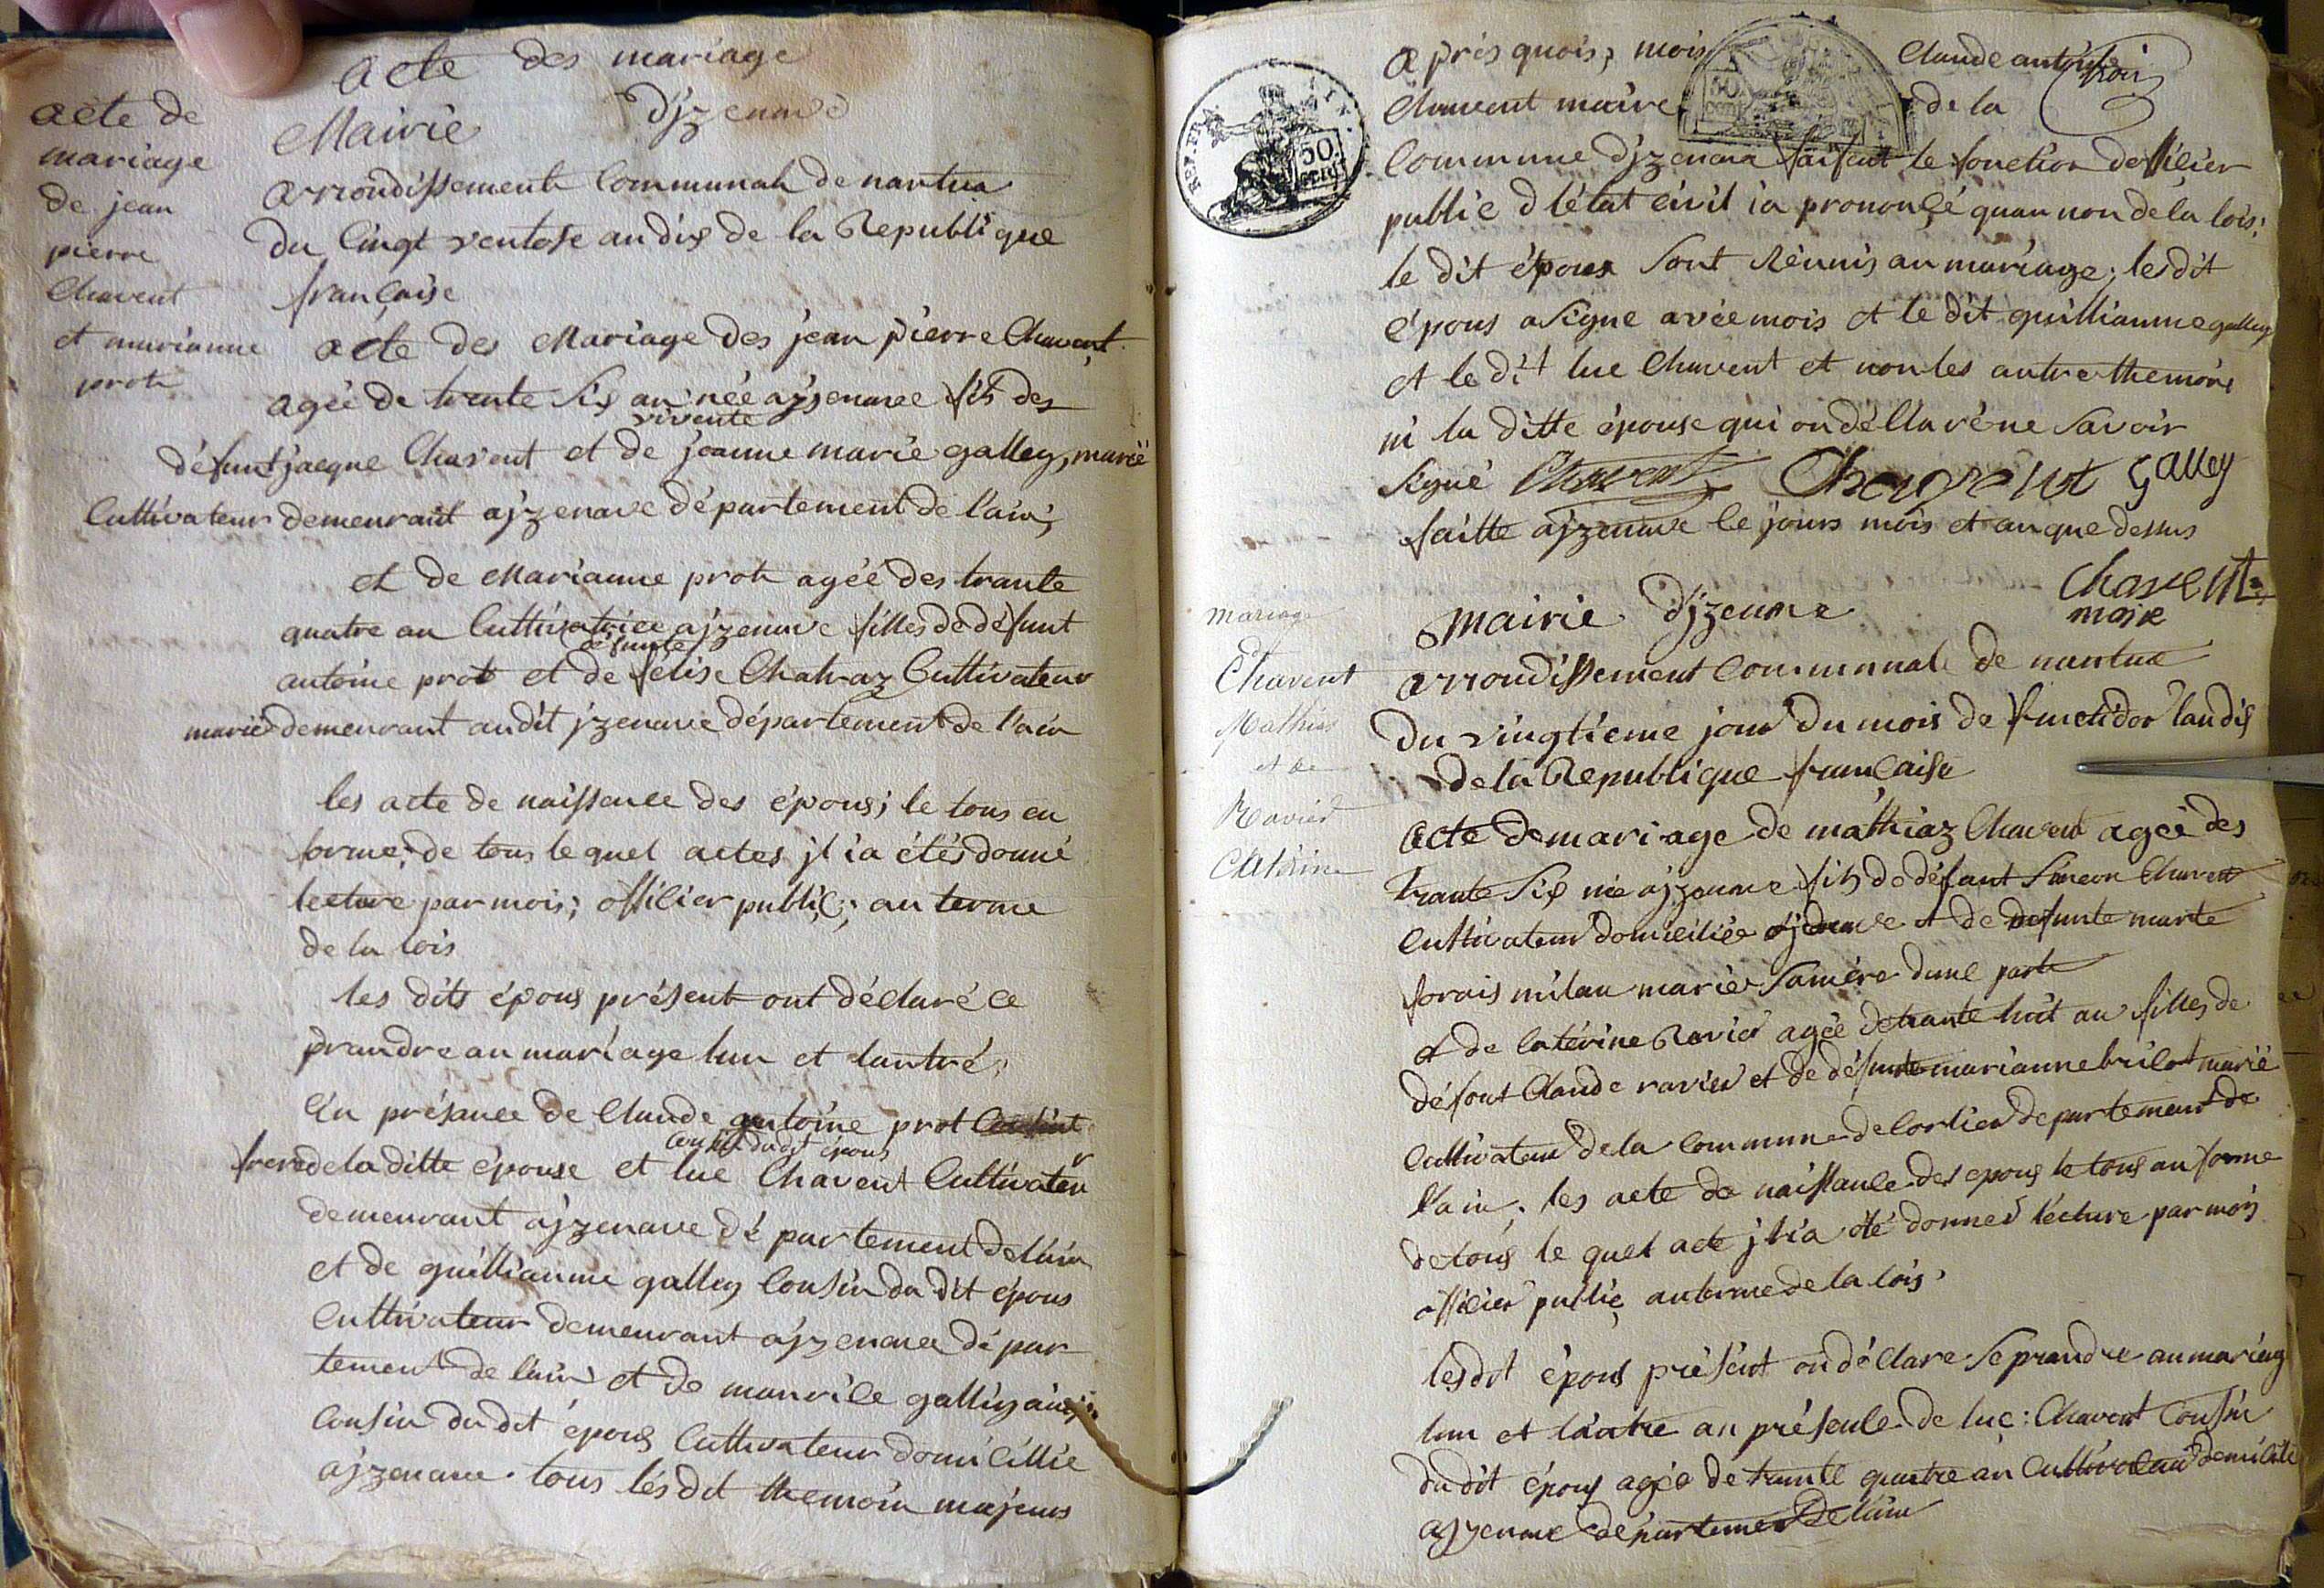 acte des mariage
Mairie d'jzenave
acte de
mariage
de jean
pierre
Chavent
et marianne
prot
arrondissement Communal de nantua
du Cinqt ventose an dix de la Republique
française
acte des Mariage des jean pierre Chavent
agée de trente six an née ajzenave fils des
vivente
défunt jacque Chavent et de jeanne marie galley, marié
Cultivateur demeurant ajzenave département de l'ain;
et de Marianne prot agéé des trante
quatre an Cultivatrice ajzenave filles de défunt
défunte
antoine prot et de felise Chatraz Cultivateur
marié demeurant audit jzenave département de l'ain
les acte de naissence des épous; le tous en
forme; de tous le quel actes jl i a étés donné
lecture par mois; offilier public; au terme
de la lois
les dits épous présent ont déclaré ce
prandre an mariage lun et lautré;
En présance de Claude antoine prot
Cousin du dit épous
frere de la ditte épouse et luc Chavent Cultivateur
demeurant ajzenave département de lain
et de guilliaume galley Cousin du dit épous
Cultivateur demeurant ajzenave dépar
tement de lain et de maurile galley
Cousin du dit épous Cultivateur domicillié
ajzenave. tous lés dit themoin majeurs
a près quois; mois Claude antoine
Chavent maire de la
REP. FRA. 50 cent
Commune djzenave faisant le fonction doffilier
public d létat civil i a prononçé quau non dela lois;
le dit épous sont Réunis an mariage; les dit
épous a signe avée mois et le dit guilliaume galley
et le dit luc Chavent et non les autre themoins
ni la ditte épouse qui on déllaré ne savoir
signé Chavent Chavent galley
faitte ajzenave le jours mois et an que dessus
Chavent
maire
Mairie d'jzenave
mariage
d
Chavent
Mathias
et de
Ravier
Catérine
arrondissement Communal de nantua
du vingtieme jour du mois de fructidor landis
de la Republique française
acte de mariage de mathiaz Chavent agée des
trante six née ajzenave fils de défant Simeon Chavent
Cultivateur domicilié ajzenave et de defunte marte
forais milan marié samére dune parte
et de Catérine Ravier agée de trante huit an filles de
défont Claude ravier et de défunte marianne brilat marié
Cultivateur de la Commune de Corlier departement de
l'ain; les acte de naissance des epous le tous an forme
de tous le quel acte jl i a été donner lécture par mois
offilier public an terme de la lois;
les dit épous présent on déclare se prandre an mariag
lun et lautre an présence de luc: Chavent Cousin
du dit épous agée de trante quatre an Cultivateur
ajzenave département de lain